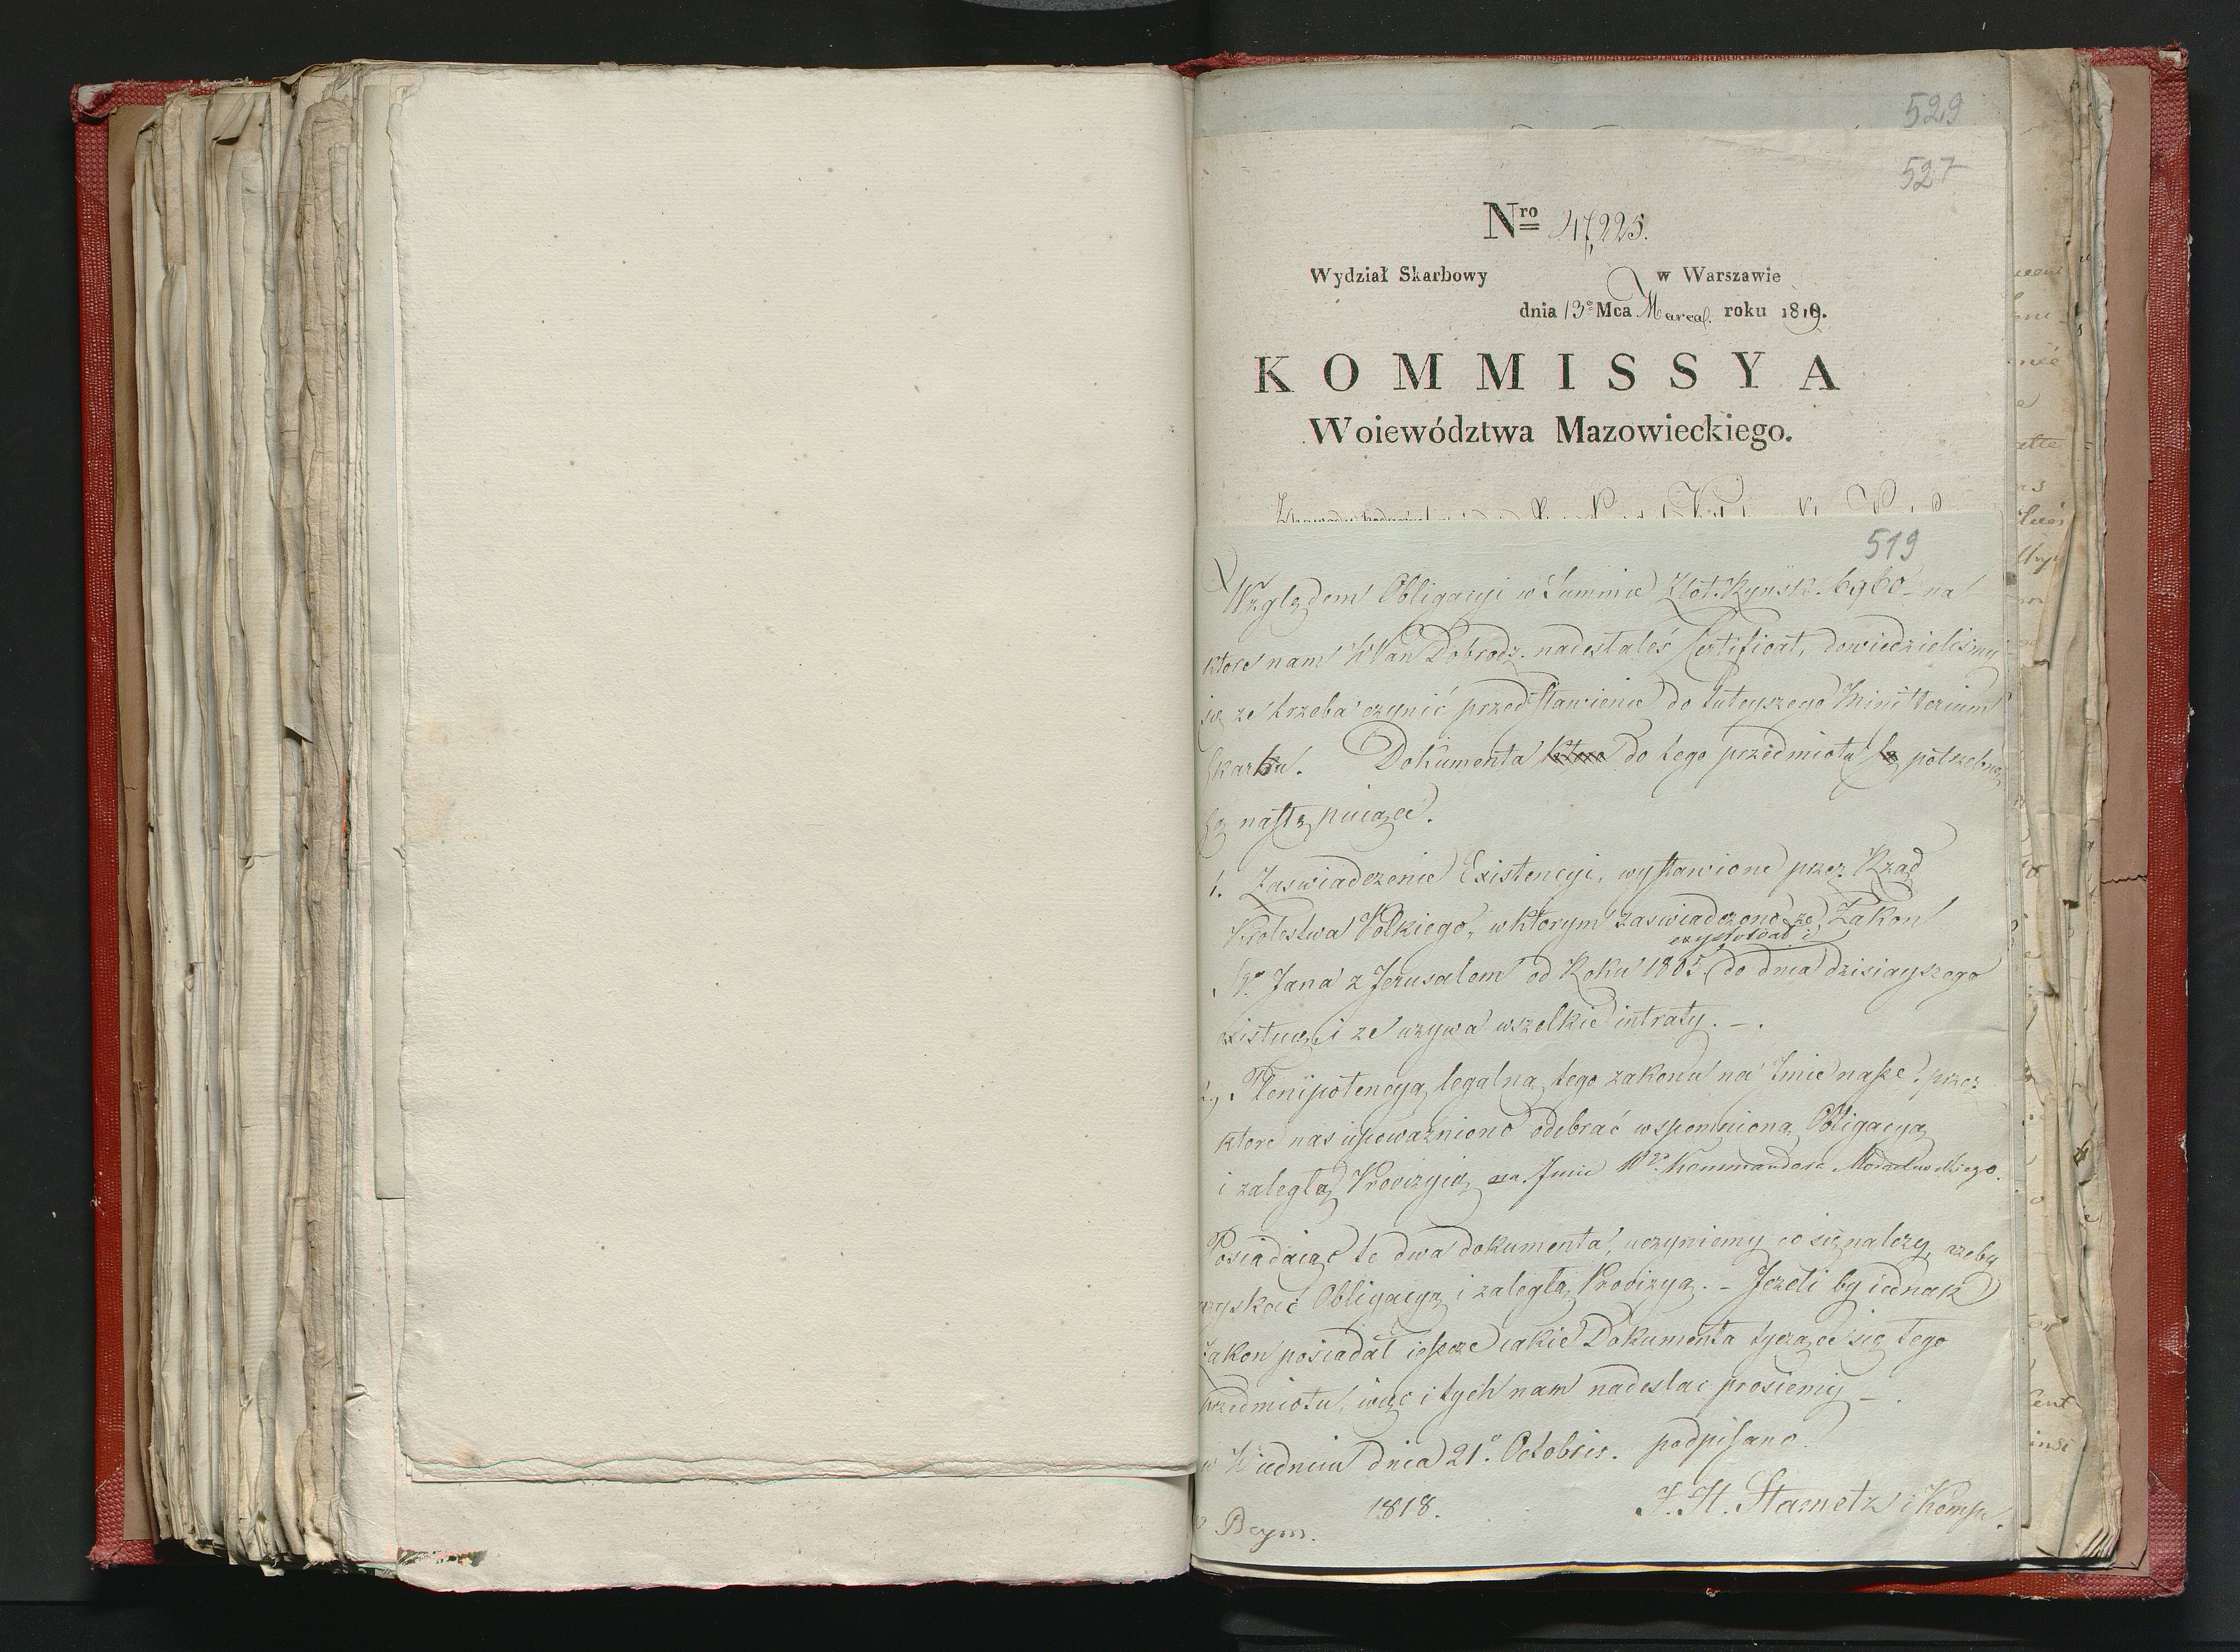 529
527
Nro 47,225.
Wydział Skarbowy w Warszawie
dnia 13o Mca Marca roku 1819.
KOMMISSYA
Woiewództwa Mazowieckiego.
519
Względem Obligacyi w Summie Złot. Rynsk. 6960 – na
ktore nam WPan Dobrodz. nadesłałeś Certificat, dowiedzieliśmy
się ze trzeba czynić przedstawienie do tuteyszego Ministerium
Skarbu. Dokumenta ktore do tego przedmiotu są potrzebne,
są następuiące.
1. Zaswiadczenie Existencyi, wystawione przez Rząd
Krolestwa Polkiego, w ktorym zaswiadczono ze Zakon
exystował i
So Jana z Jerusalem od Roku 1805 do dnia dzisiayszego
existuie, i ze uzywa wszelkie intraty. – .
2, Plenipotencyą legalną tego zakonu na Imie nasze, przez
ktore nas upowazniono odebrać wspomnioną Obligacyą
i zaległą Prowizyią na Imie Wo Kommandora
Posiadaiąc te dwa dokumenta, uczyniemy co się nalezy, azeby
uzyskać Obligacyą i zaległą Prowizyą. – Jezeli by iednak
Zakon posiadał ieszcze iakie Dokumenta tyczące się tego
przedmiotu, więc i tych nam nadeslac prosiemy –
w Wiedniu dnia 21o Octobris. podpisano.
1818. J. H. Stametz i Komp.
Beym.